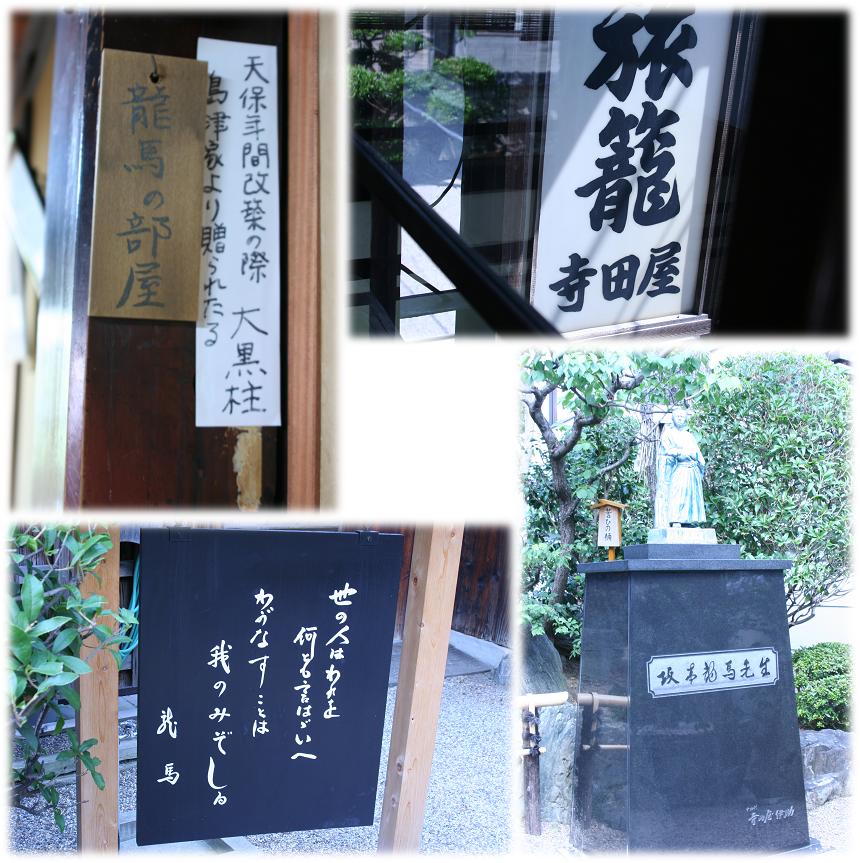 龍馬の部屋
天保年間改築の際
島津家より贈られたる
大黒柱
旅籠
寺田屋
世の人はわれを
何とも言はゞいへ
わがなすことは
我のみぞしる
龍馬
坂本龍馬先生
寺田屋伊助